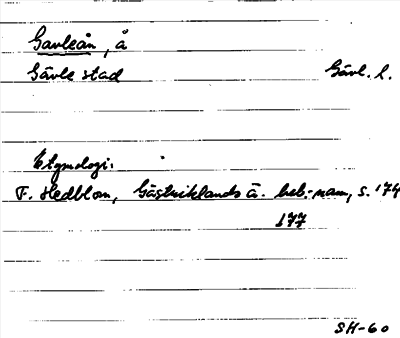 Gavleån, å
Gävle stad Gävl. l.
Etymologi:
F. Hedblom, Gästriklands ä. beb.-namn, s. 174
177
SH-60